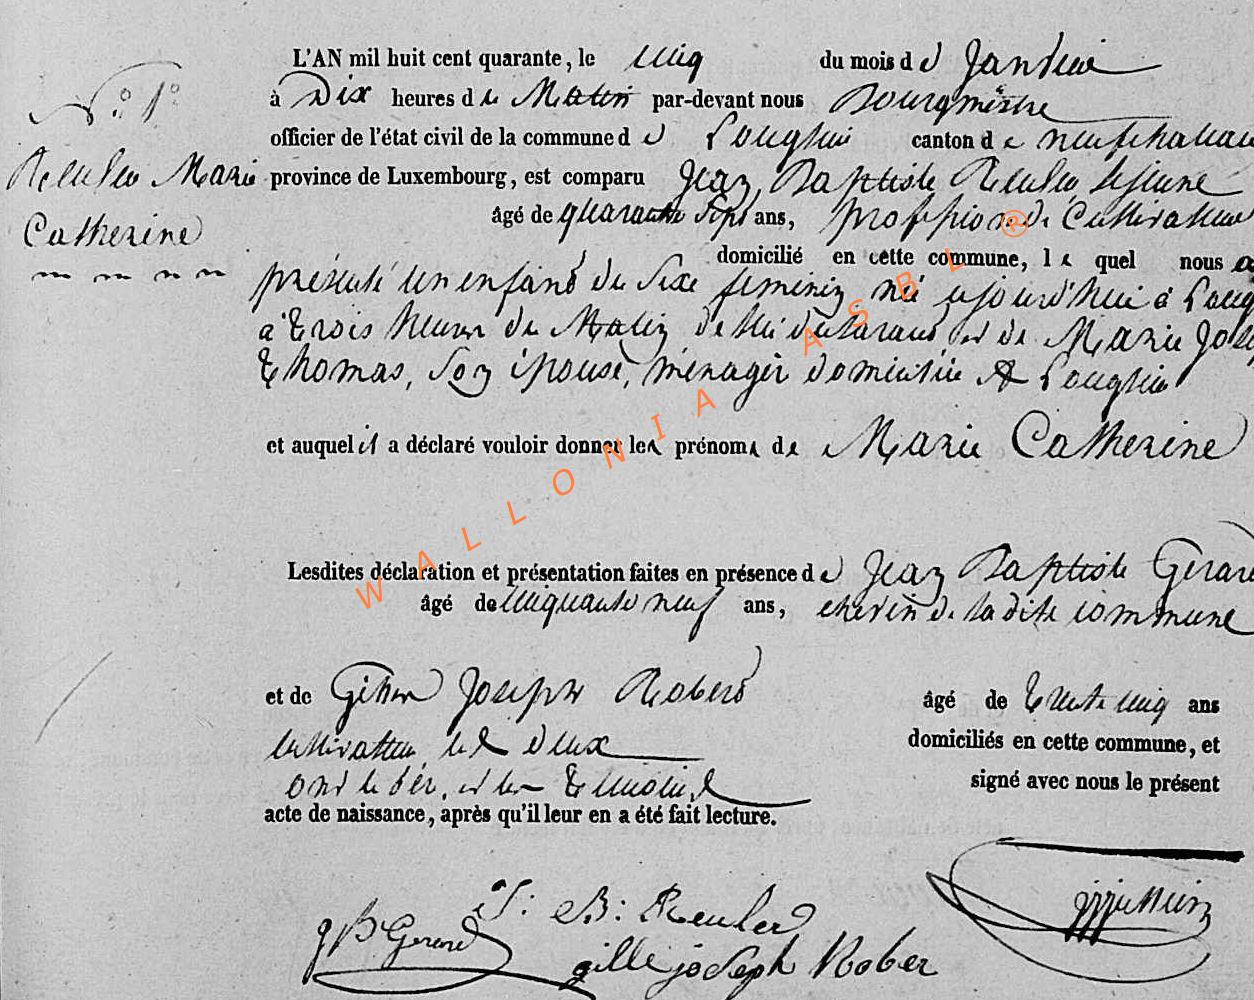 L'AN mil huit cent quarante, le cinq du mois de Janvier
N° 1°
à Dix heures de Matin par-devant nous Bourgmestre
officier de l'état civil de la commune de Longlier canton de neufchateau
Marie province de Luxembourg, est comparu Jean Baptiste
Catherine
âgé de quarante Sept ans, profession de Cultivateur
domicilié en cette commune, le quel nous a
présenté un enfant du Sexe feminin né aujourd'hui à Longl
à trois heures du Matin de lui déclarant et de Marie Jose
Thomas, Son épouse, ménagère domiciliée A Longlier
et auquel il a déclaré vouloir donner les prénoms de Marie Catherine
Lesdites déclaration et présentation faites en présence de Jean Baptiste Gerard
âgé de cinquante neuf ans, echevin de la dite commune
et de Joseph Robert âgé de trente cinq ans
cultivateur, les deux domiciliés en cette commune, et
ont le pèr, et les témoins signé avec nous le présent
acte de naissance, après qu'il leur en a été fait lecture.
J: B: Reuler
J B Gerard
gille joseph Rober
WALLONIA ASBL ®